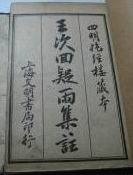 四明掃經樓藏本
王次回疑雨集註
上海文明書局印行